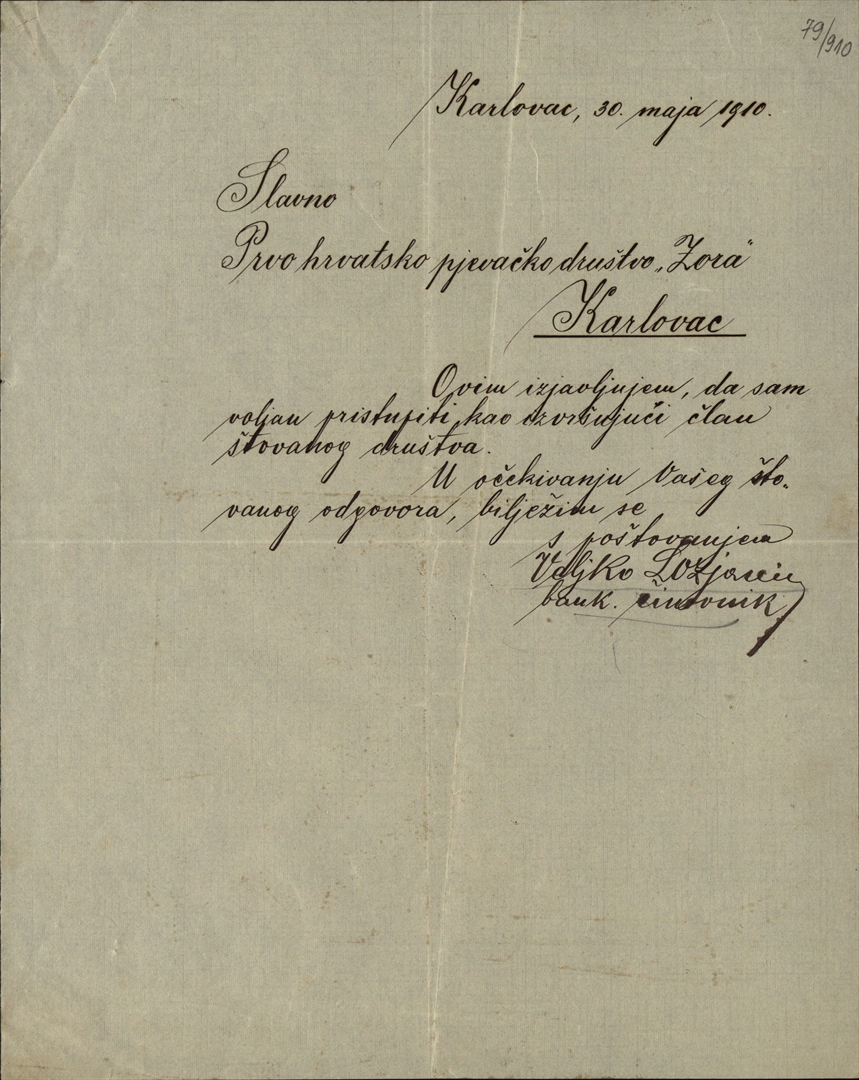 79/910
Karlovac, 30. maja 1910.
Slavno
Prvo hrvatsko pjevačko društvo „Zora“
Karlovac
Ovim izjavljujem, da sam
voljan pristupiti kao izvršujući član
štovanog društva.
U očekivanju Vašeg što-
vanog odgovora, bilježim se
s poštovanjem
Veljko
bank. činovnik